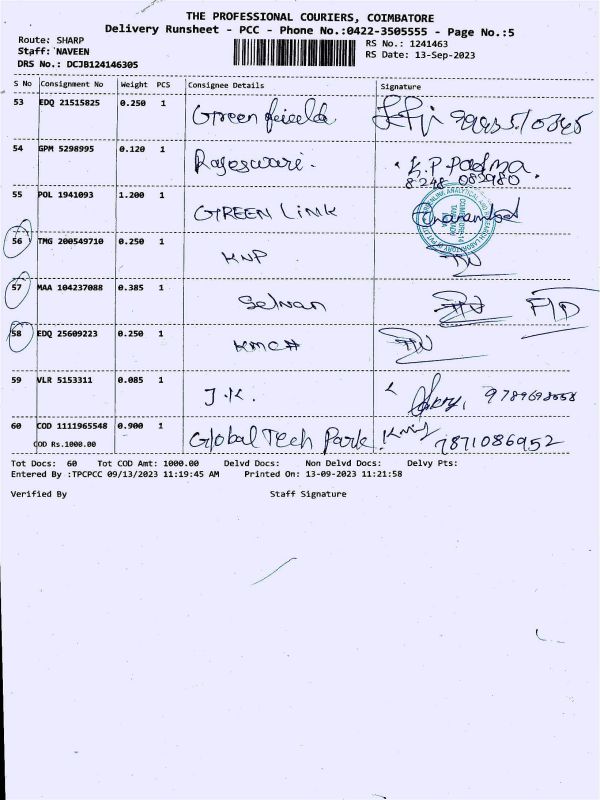 THE PROFESSIONAL COURIERS, COIMBATORE
Delivery Runsheet - PCC - Phone No.:0422-3505555 - Page No.:5
Route: SHARP RS No.: 1241463
Staff: NAVEEN RS Date: 13-Sep-2023
DRS No.: DCJB124146305
S No Consignment No Weight PCS Consignee Details Signature
53 EDQ 21515825 0.250 1 Green
54 GPM 5298995 0.120 1 Rajeswari. K.P. Padma.
8248 082980
55 POL 1941093 1.200 1 GREEN LINK
56 TMG 200549710 0.250 1 KNP
57 MAA 104237088 0.385 1 Selvan
58 EDQ 25609223 0.250 1 KMCH
59 VLR 5153311 0.085 1 J.K.
60 COD 1111965548 0.900 1 Global Tech Park. 7871086952
COD Rs.1000.00
Tot Docs: 60 Tot COD Amt: 1000.00 Delvd Docs: Non Delvd Docs: Delvy Pts:
Entered By :TPCPCC 09/13/2023 11:19:45 AM Printed On: 13-09-2023 11:21:58
Verified By Staff Signature